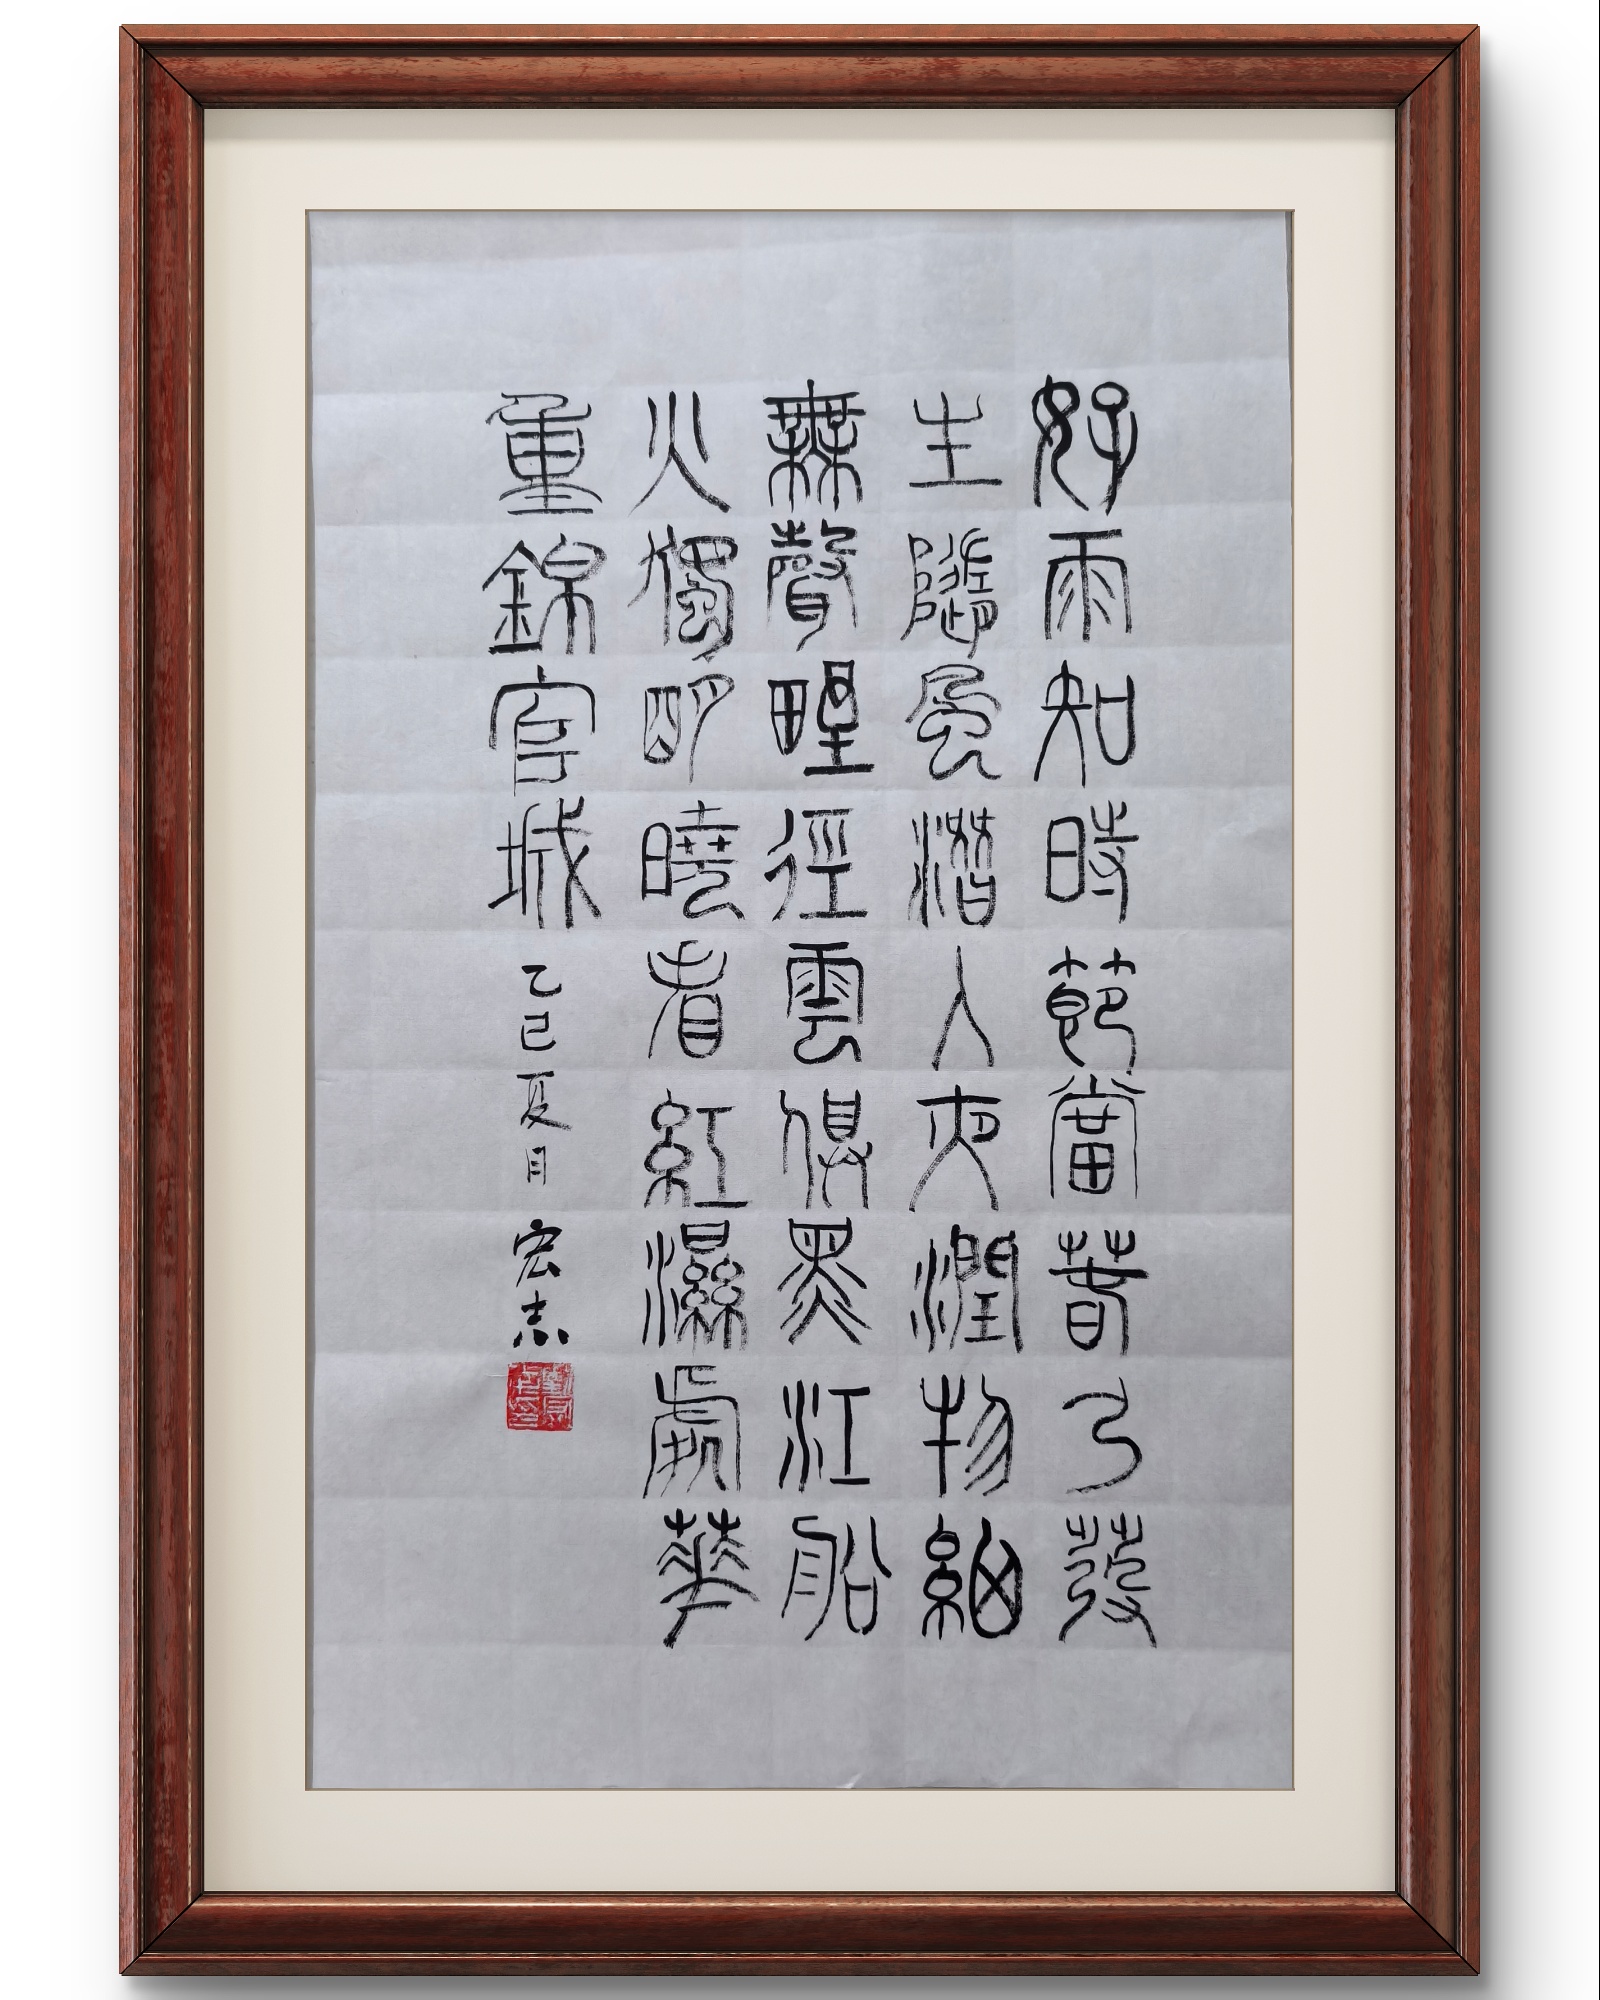 好雨知時節當春乃發
生隨風潛入夜潤物細
無聲野徑雲俱黑江船
火獨明曉看紅濕處華
重錦官城 乙巳夏月 宏志